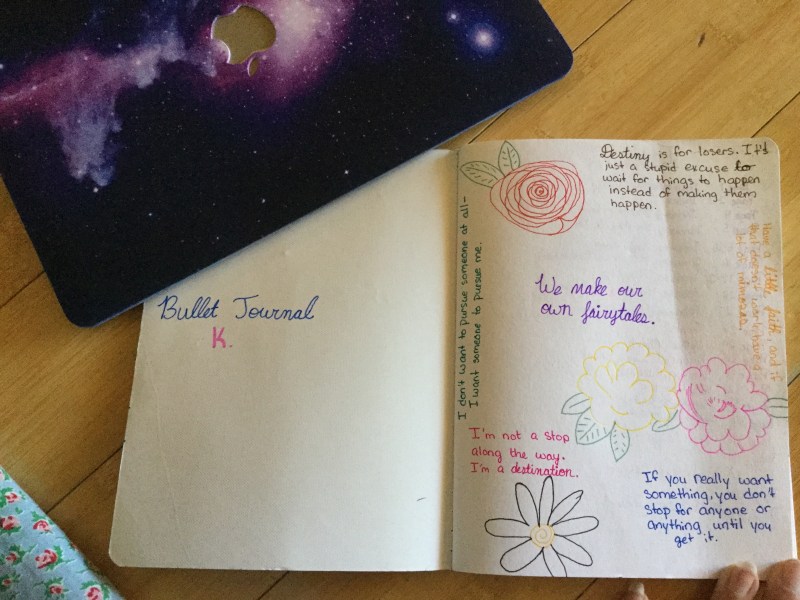 Bullet Journal
K.
Destiny is for losers. It's
just a stupid excuse to
wait for things to happen
instead of making them
happen.
I don't want to pursue someone at all-
I want someone to pursue me.
Have a little faith, and if
that doesn't work have a
lot of mimosas.
We make our
own fairytales.
I'm not a stop
along the way.
I'm a destination.
If you really want
something, you don't
stop for anyone or
anything until you
get it.